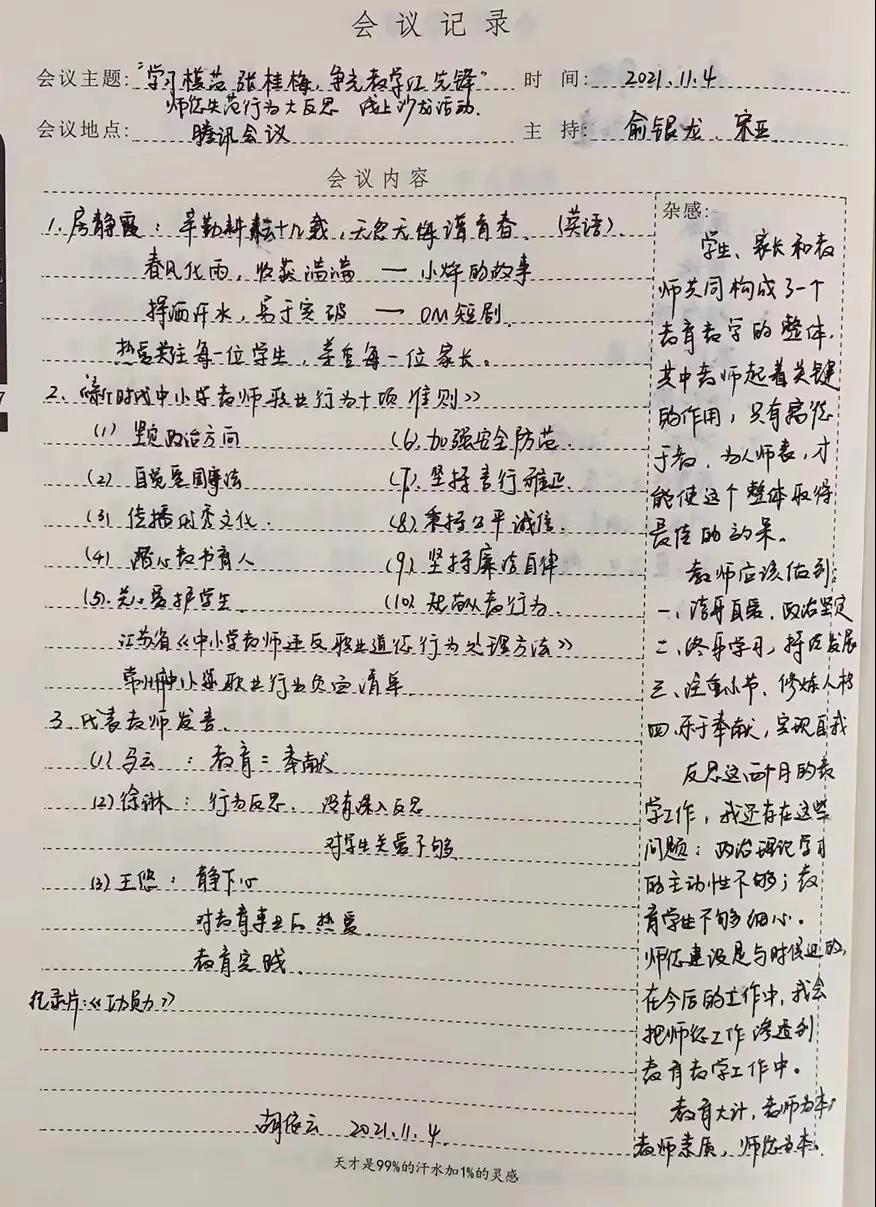 会议记录
会议主题:“学习模范张桂梅,争先教学江先锋” 时 间: 2021.11.4
师德失范行为大反思 线上沙龙活动.
会议地点: 腾讯会议 主 持: 俞银龙、宋亚
会议内容
1. 房静霞: 辛勤耕耘十几载,无怨无悔谱青春. (英语).
春风化雨,收获满满 — 小烨的故事
挥洒汗水,勇于突破 — DM短剧.
热爱关注每一位学生,尊重每一位家长。
2.《新时代中小学教师职业行为十项准则》
(1) 坚定政治方向 (6) 加强安全防范.
(2) 自觉爱国守法 (7) 坚持言行雅正.
(3) 传播优秀文化. (8) 秉持公平诚信.
(4) 潜心教书育人 (9) 坚持廉洁自律
(5) 关心爱护学生. (10) 规范从教行为.
江苏省《中小学教师违反职业道德行为处理方法》
常州市中小学职业行为负面清单.
3. 代表教师发言.
(1) 马云 : 教育 = 奉献
(2) 徐琳 : 行为反思. 没有深入反思
对学生关爱不够.
(3) 王悠 : 静下心
对教育事业的热爱.
教育实践.
纪录片:《功勋》
胡依云 2021.11.4.
杂感:
学生、家长和教
师共同构成了一个
教育教学的整体.
其中老师起着关键
的作用,只有高德
于教,为人师表,才
能使这个整体取得
最佳的效果。
教师应该做到:
一、洁身自爱、政治坚定
二、终身学习,持续发展
三、注重小节、修炼人格
四、乐于奉献,实现自我
反思这两个月的教
学工作,我还存在这些
问题:政治理论学习
的主动性不够;教
育学生不够细心。
师德建设是与时俱进的,
在今后的工作中,我会
把师德工作渗透到
教育教学工作中。
教育大计,老师为本;
老师素质,师德为本.
天才是99%的汗水加1%的灵感